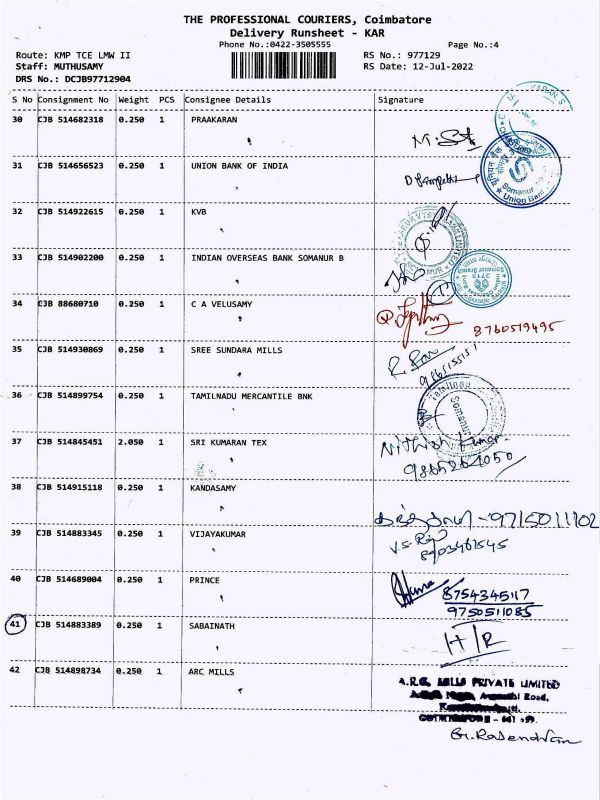 THE PROFESSIONAL COURIERS, Coimbatore
Delivery Runsheet - KAR
Phone No.:0422-3505555 Page No.:4
Route: KMP TCE LMW II RS No.: 977129
Staff: MUTHUSAMY RS Date: 12-Jul-2022
DRS No.: DCJB97712904
S No Consignment No Weight PCS Consignee Details Signature
30 CJB 514682318 0.250 1 PRAAKARAN
31 CJB 514656523 0.250 1 UNION BANK OF INDIA
Somanur
Union Bank
32 CJB 514922615 0.250 1 KVB
33 CJB 514902200 0.250 1 INDIAN OVERSEAS BANK SOMANUR B
34 CJB 88680710 0.250 1 C A VELUSAMY
8760519495
35 CJB 514930869 0.250 1 SREE SUNDARA MILLS
36 CJB 514899754 0.250 1 TAMILNADU MERCANTILE BNK
Somanur
37 CJB 514845451 2.050 1 SRI KUMARAN TEX
Nithish Kumar.
9865264050
38 CJB 514915118 0.250 1 KANDASAMY
கந்தசாமி - 9715011102
39 CJB 514883345 0.250 1 VIJAYAKUMAR
40 CJB 514689004 0.250 1 PRINCE
8754345117
9750511085
41 CJB 514883389 0.250 1 SABAINATH
HTR
42 CJB 514898734 0.250 1 ARC MILLS
MILLS PRIVATE LIMITED
Road,
COIMBATORE
G. Rajendran